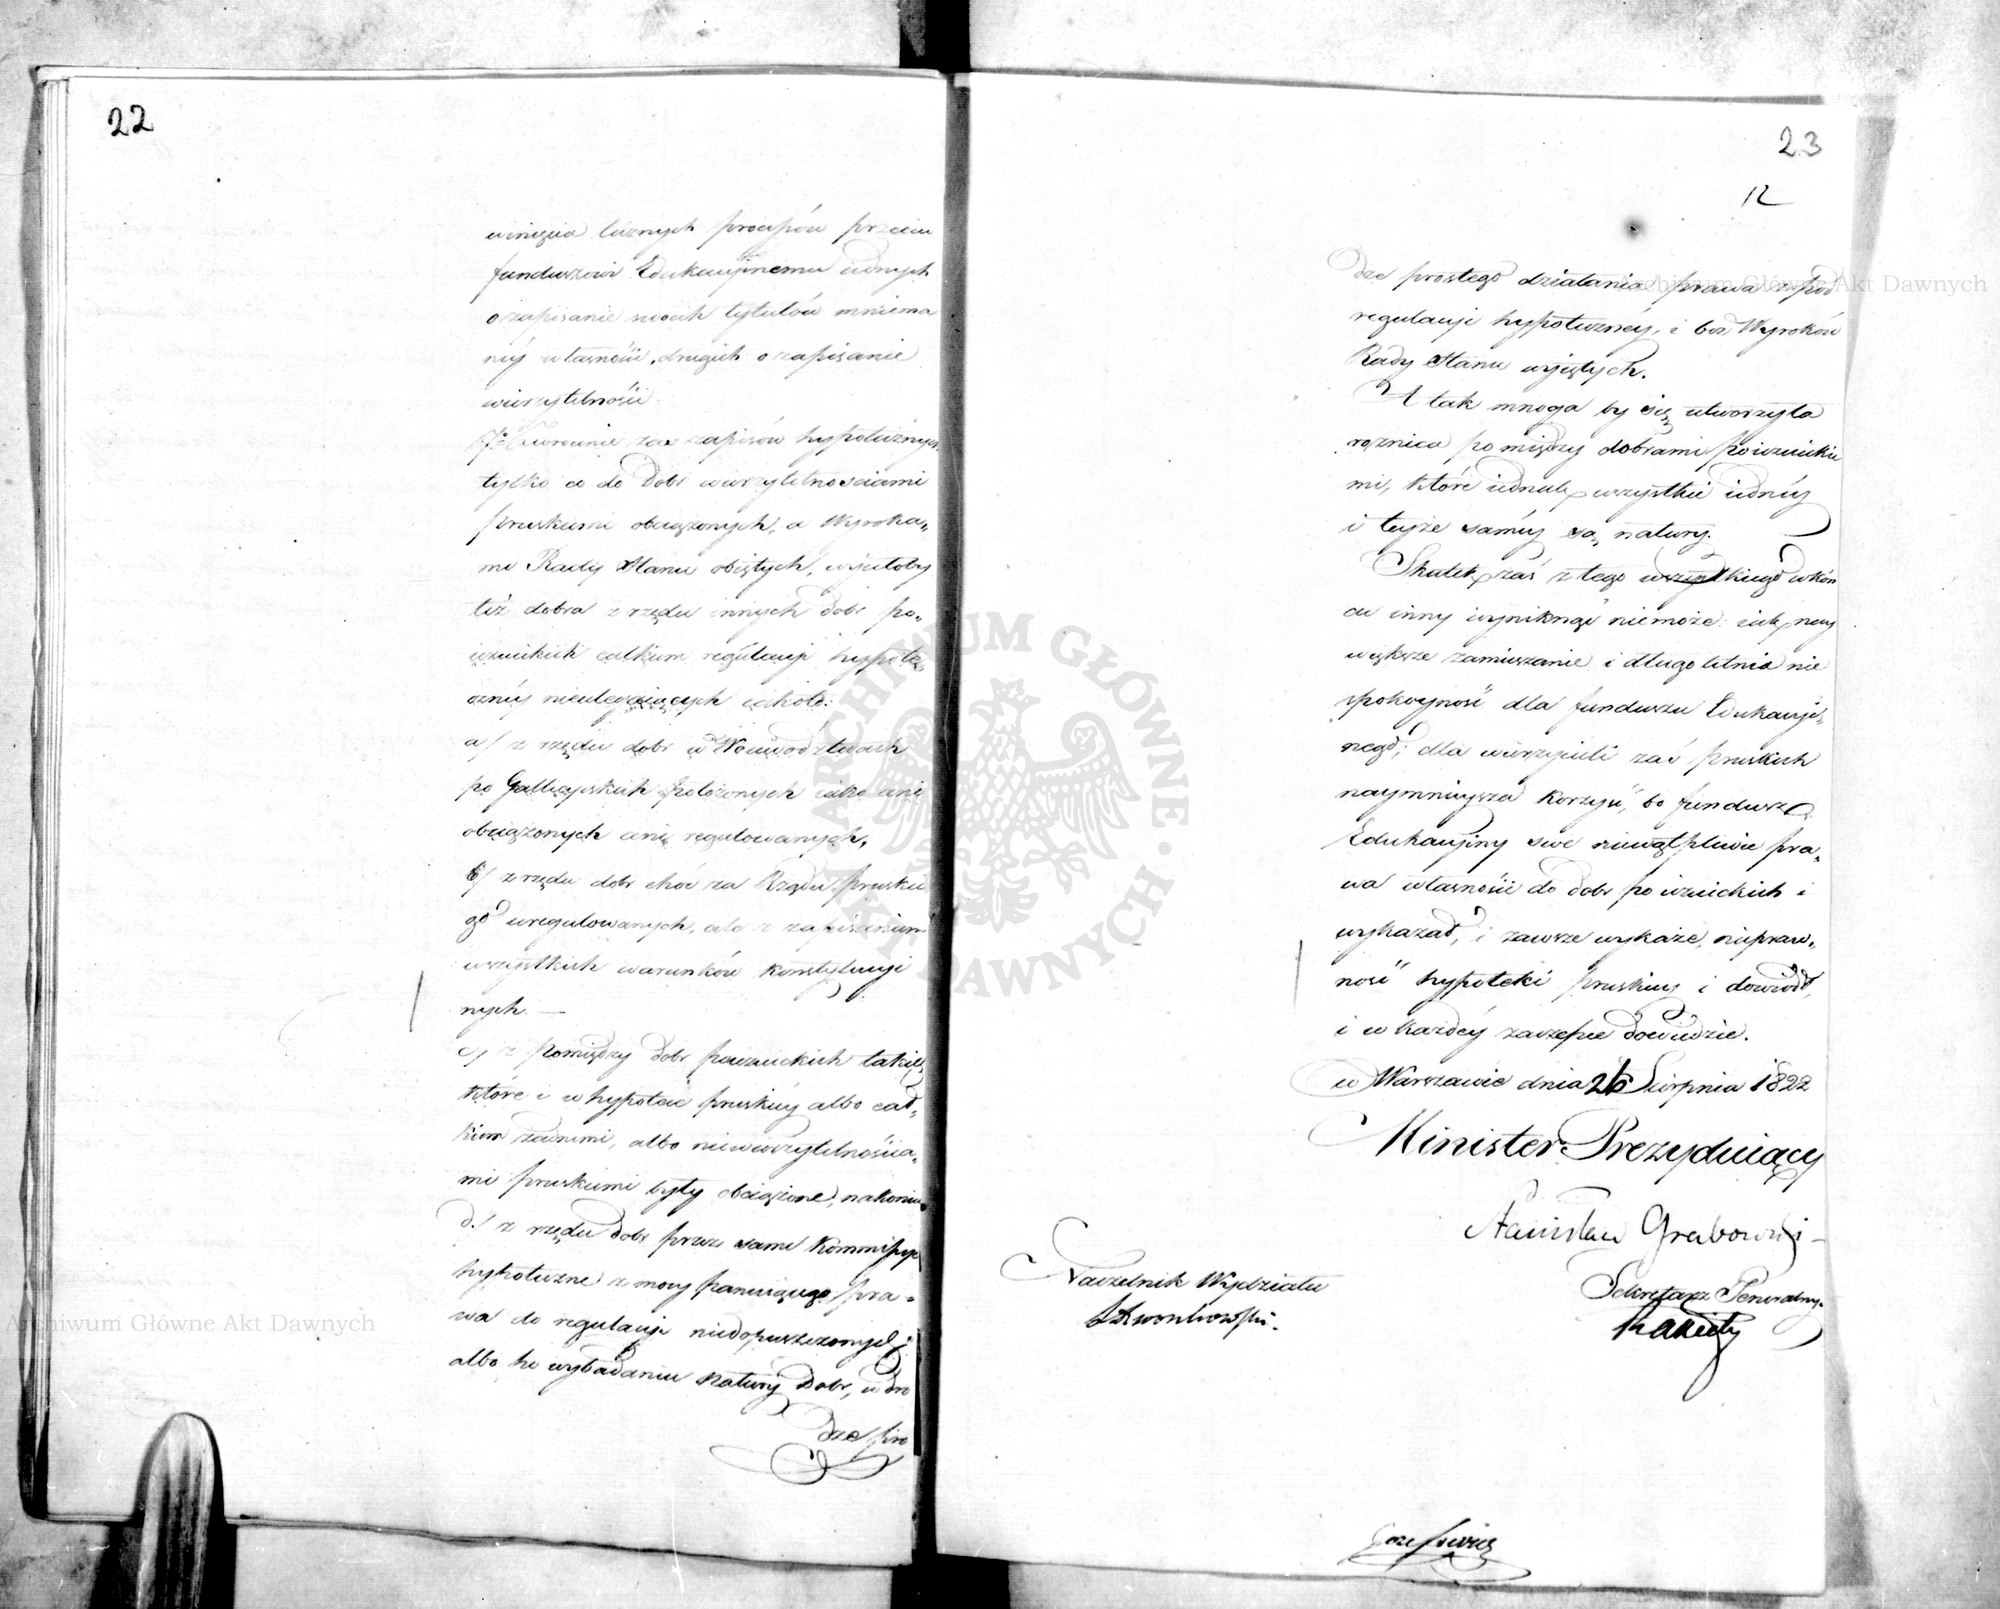 22
winięcia licznych processów przeciw
funduszowi Edukacyinemu iednych
o zapisanie swoich tytułów mniema
néy własności, drugich o zapisanie
wierzytelności.
7o zas zapisów hypotecznych
tylko co do Dobr wierzytelnosciami
pruskiemi obciążonych, a Wyroka=
mi Rady Stanu obiętych, wyięłoby
też dobra z rzędu innych dobr po=
iezuickich całkiem regulacyi hypote=
cznéy nieulegaiących iakoto:
a/ z rzędu dobr w Woiewodztwach
po Gallicyiskich położonych iako ani
obciążonych ani regulowanych.
b/ z rzędu dobr choć za Rządu pruskie
go uregulowanych, ale z zapisaniem
wszystkich warunków konstytucyi
nych. —
c/ z pomiędzy dobr poiezuickich takie
które i w hypotece pruskiéy albo cał=
kiem żadnemi, albo niewierzytelnościa=
mi pruskiemi były obciążone, nakoniec
d./ z rzędu dobr przez same Kommissye
hypoteczne z mocy panuiącego pra=
wa do regulacyi niedopuszczonych;
albo po wybadaniu natury Dobr, w dro
dze pro
23
12
dze prostego działania prawa z pod
regulacyi hypotecznéy, i bez Wyroków
Rady Stanu wyiętych.
A tak mnoga by się utworzyła
rożnica pomiędzy dobrami poiezuickie
mi, które iednak wszystkie iednéy
i teyże saméy są natury.
Skutek zaś z tego wszystkiego w koń
cu inny wyniknąć niemoże: iak nay
większe zamieszanie i długoletnia nie
spokoyność dla funduszu Edukacyi=
nego; dla wierzycieli zaś pruskich
naymnieysza korzyść, bo fundusz
Edukacyiny swe niewątpliwie pra=
wa własności do dobr poiezuickich i
wykazał, i zawsze wykaże, niepraw=
ność hypoteki pruskiey i dowiodł,
i w każdéy zaczepce dowiedzie.
w Warszawie dnia 26 Sierpnia 1822
Minister Prezyduiący
Stanisław Grabowski
Sekretarz Generalny.
Naczelnik Wydziału